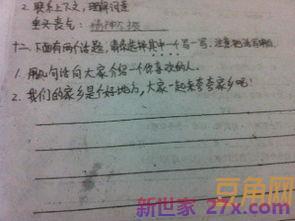 2. 联系上下文，理解词意
垂头丧气：精神不振
十二、下面有两个话题，请你选择其中一个写一写，注意把话写
1. 用几句话向大家介绍一个你喜欢的人。
2. 我们的家乡是个好地方，大家一起来夸夸家乡吧！
豆角网
新世家 27x.com